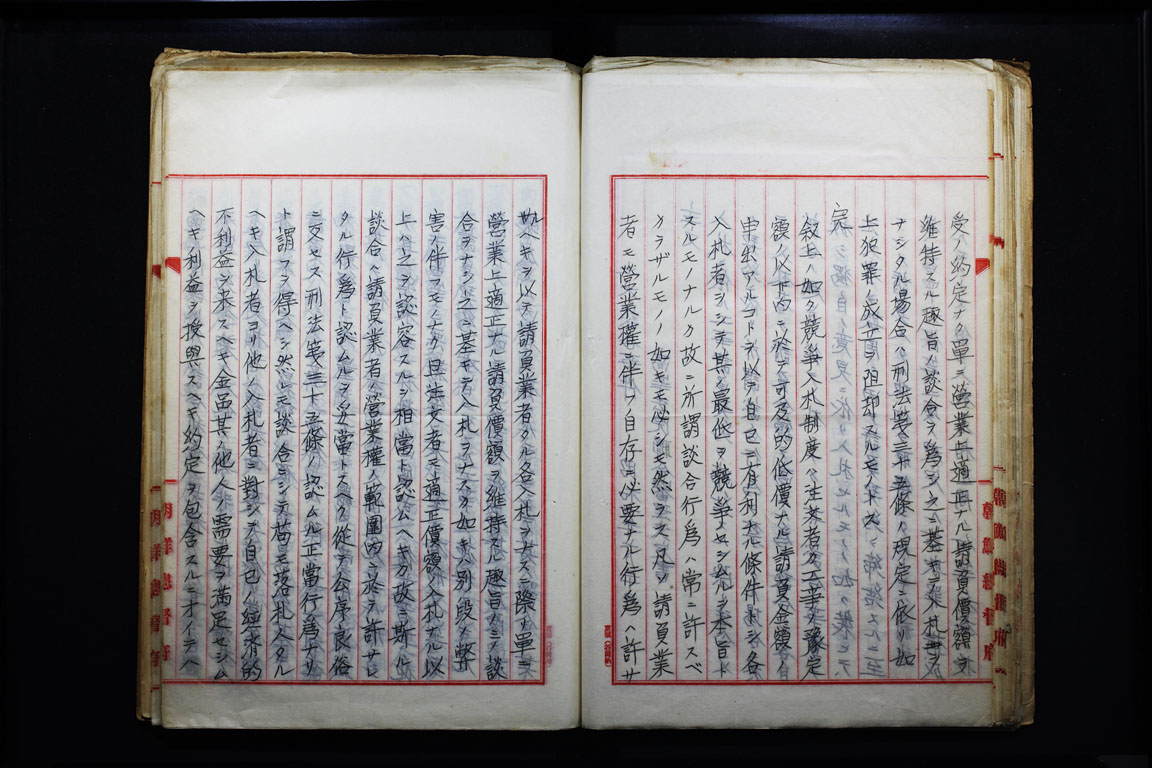 受ノ約定ナク單ニ營業上適正ナル請負價額ヲ
維持スル趣旨ノ談合ヲ為シ之ニ基キテ入札ヲ
ナシタル場合ハ刑法第三十五條ノ規定ニ依リ如
上犯罪ノ成立ヲ阻却スルモノトス
叙上ノ如ク競爭入札制度ハ注文者カ工事ノ豫定
額ノ以內ニ於テ可及的低價ナル請負金額ノ
申出アルコトヲ以テ自己ニ有利ナル條件トシ各
入札者ヲシテ其ノ最低ヲ競爭セシムルヲ本旨ト
スルモノナルカ故ニ所謂談合行為ハ常ニ許スベ
カラザルモノノ如キモ必シモ然ラス凡ソ請負業
者モ營業權ニ伴フ自存ニ必要ナル行為ハ許サ
ルヘキヲ以テ請負業者カ各入札ヲナスニ際リ單ニ
營業上適正ナル請負價額ヲ維持スル趣旨ノミニテ談
合ヲナシ之ニ基キテ入札ヲナスカ如キハ別段ノ弊
害ノ伴フモノナク且注文者モ適正價額ノ入札ナル以
上ハ之ヲ認容スルヲ相當ト認ムヘキカ故ニ斯ル
談合ハ請負業者ノ營業權ノ範圍內ニ於テ許サレ
タル行為ト認ムルヲ妥當トスヘク從テ公序良俗
ニ反セス刑法第三十五條ノ認ムル正當行為ナリ
ト謂フヲ得ヘシ然レモ談合ニシテ苗モ落札人タル
ヘキ入札者ヨリ他ノ入札者ニ對シテ自己ノ經濟的
不利益ヲ来スヘキ金品其ノ他人ノ需要ヲ滿足セシム
ヘキ利益ヲ授與スヘキ約定ヲ包含スルニオイテハ
朝鮮總督府